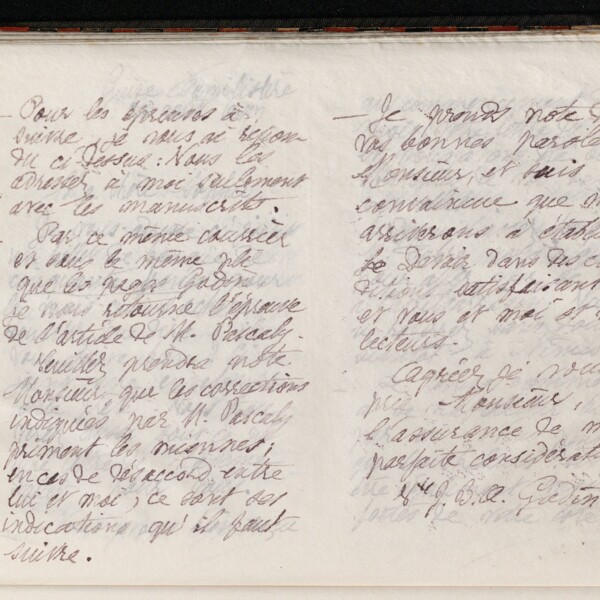 — Pour les épreuves à
suivre, je vous ai répon
du ci-dessus : Vous les
adressez à moi seulement
avec les manuscrits.
- Par ce même courrier
et sous le même pli
que les pages Godin
je vous retourne l'épreuve
de l'article de M. Pascaly.
Veuillez prendre note
Monsieur que les corrections
indiquées par M. Pascaly
priment les miennes ;
en cas de désaccord entre
lui et moi, ce sont ses
indications qu'il faut
suivre.
— Je prends note d
vos bonnes parole
Monsieur, et suis
convaincue que n
arriverons à établ
Le Devoir dans des c
satisfaisant
et vous et moi et
lecteurs.
agréez je vou
prie, Monsieur,
l'assurance de m
parfaite considérat
Vve J. B. A. Godin